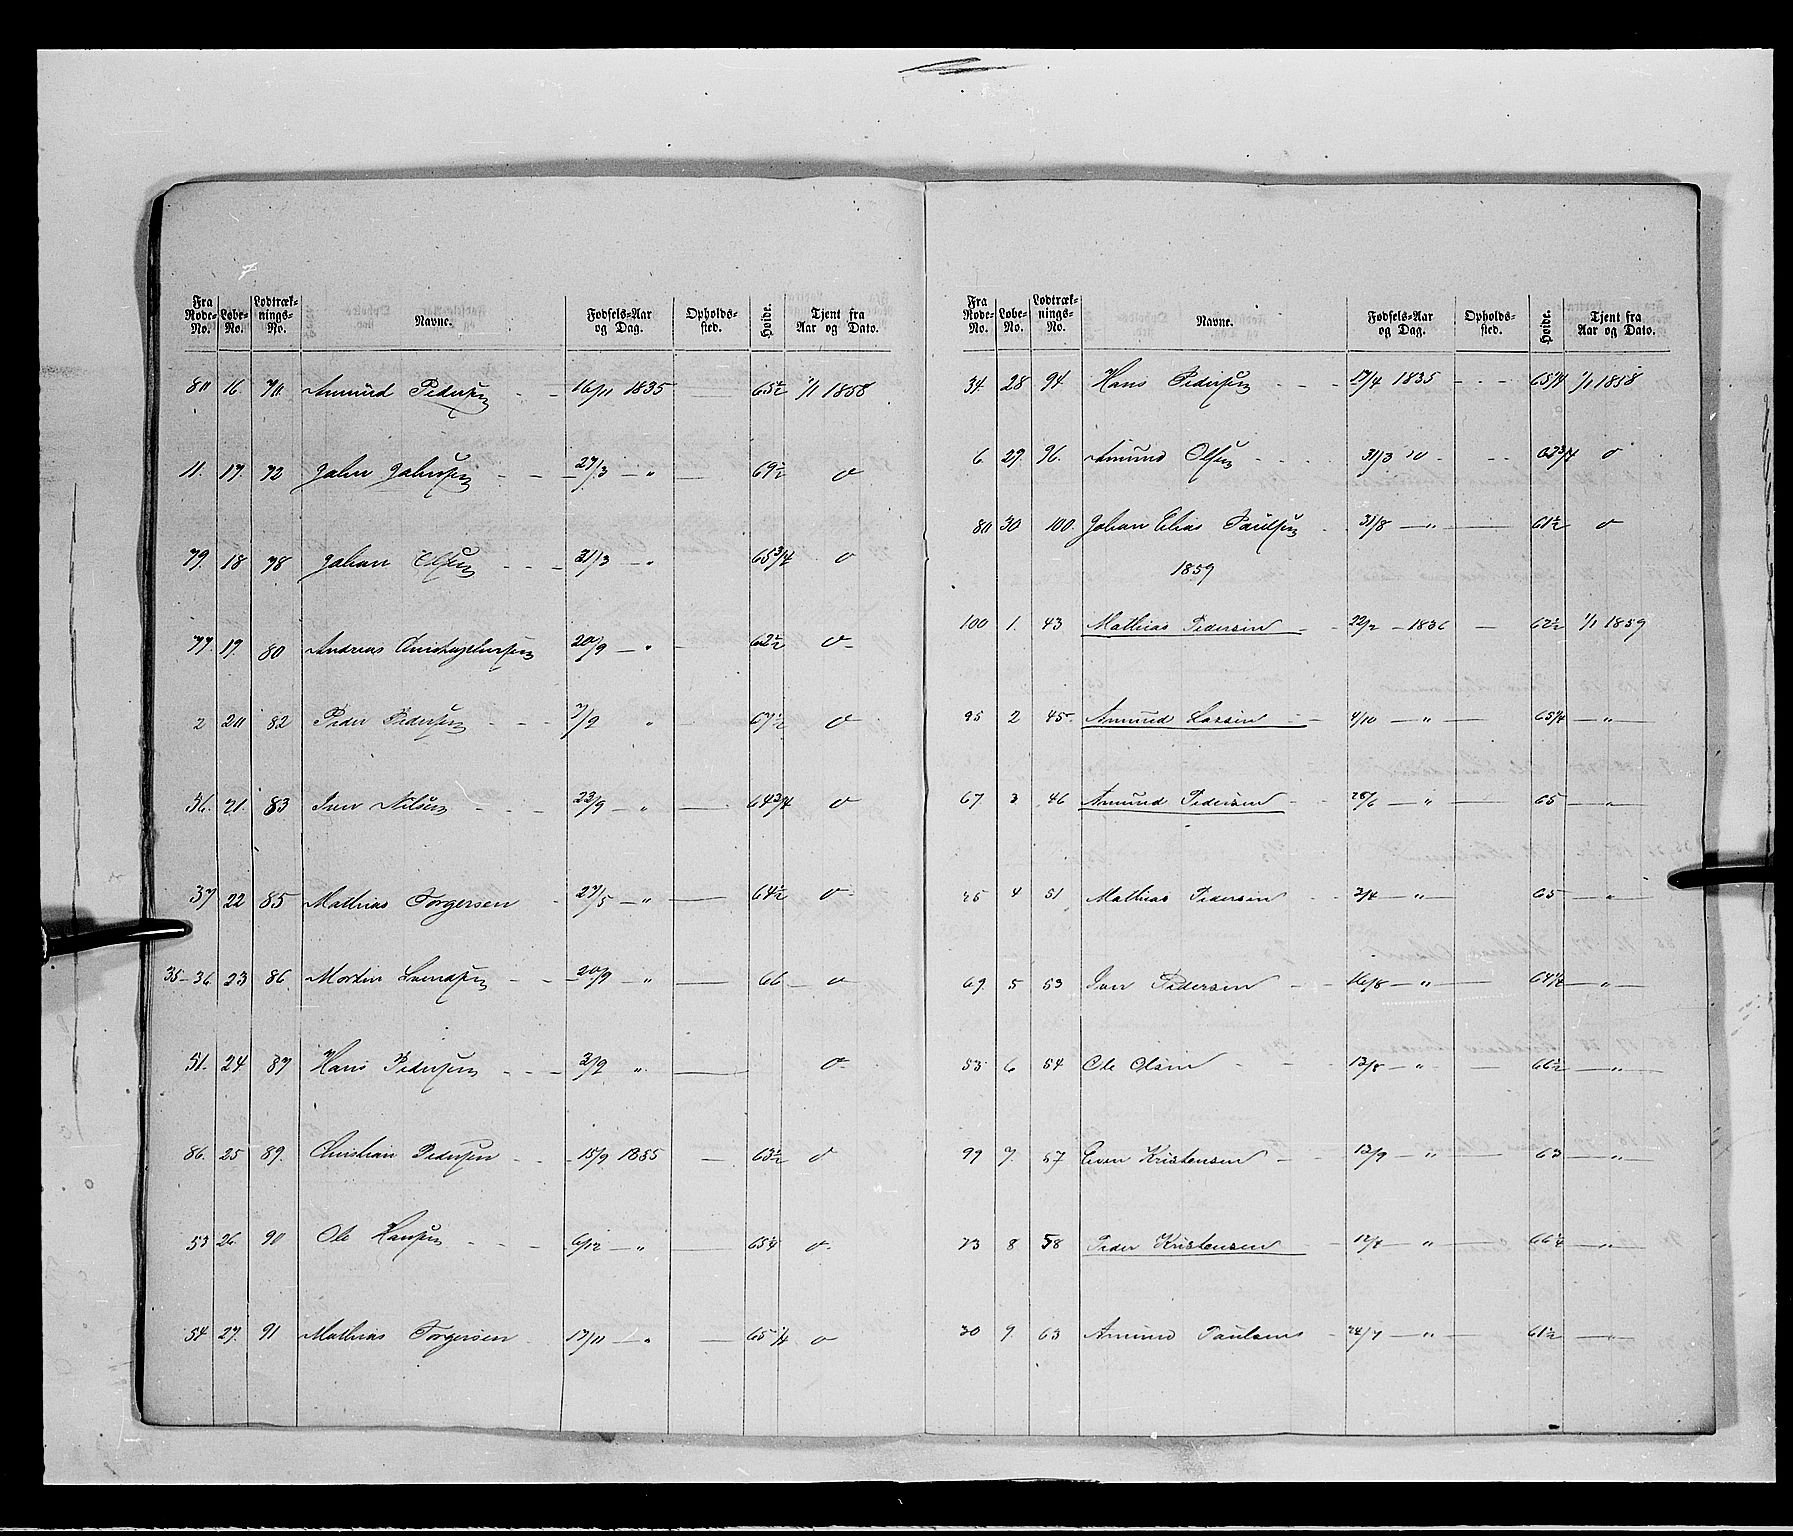 Fra Rode-No. Løbe-No. Lodtræk-nings-No. Navne. Fødsels-Aar og Dag. Opholds-sted. Høide. Tjent fra Aar og Dato.
80 16. 70 Amund Pedersen 16/11 1835 65 1/2 1/1 1858
11. 17. 72 John Johnsen 27/3 — " 69 1/2 o
79. 18 78 Johan Olsen 31/3 — " 65 3/4 o
77. 19 80 Andreas Christophersen 20/9 — " 62 1/2 o
2 20 82 Peder Pedersen 7/9 " 67 1/2 o
36. 21. 83 Iver Nilsen 23/9 — " 64 3/4 o
37 22 85 Mathias Torgersen 27/5 — " 64 1/2 o
35-36. 23 86 Morten 20/9 " 66 o
51. 24 87 Hans Pedersen 2/9 " o
86. 25 89. Christian Pedersen 15/9 1835 63 1/2 o
53 26. 90 Ole Hansen 6/12 — " 65 1/4 o
54 27. 91 Mathias Torgersen 17/11 — " 65 1/4 o
Fra Rode-No. Løbe-No. Lodtræk-nings-No. Navne. Fødsels-Aar og Dag. Opholds-sted. Høide. Tjent fra Aar og Dato.
34 28 94 Hans Pedersen 17/4 1835 65 1/4 1/1 1858
6 29 96. Amund Olsen 31/3 o 63 3/4 o
80 30 100. Johan Elias Paulsen 31/8 — " 61 1/2 o
1859
100 1. 43 Mathias Pedersen 22/2 - 1836 62 1/2 1/1 1859
95 2 45. Amund Larsen 4/10 — " 65 1/4 — "
67. 3 46 Amund Pedersen 25/6 — " 65 — "
25 4 51 Mathias Pedersen 3/4 — " 65 — "
69. 5 53 Iver Pedersen 16/8 — " 64 1/4 — "
53 6 54 Ole Olsen 13/8 — " 66 1/2 — "
99 7. 57 Even Kristensen 13/9 — " 63 — "
73 8 58 Peder Kristensen 12/8 — " 66 1/4 — "
30 9. 63 Amund Paulsens 24/7 — " 61 1/2 — "